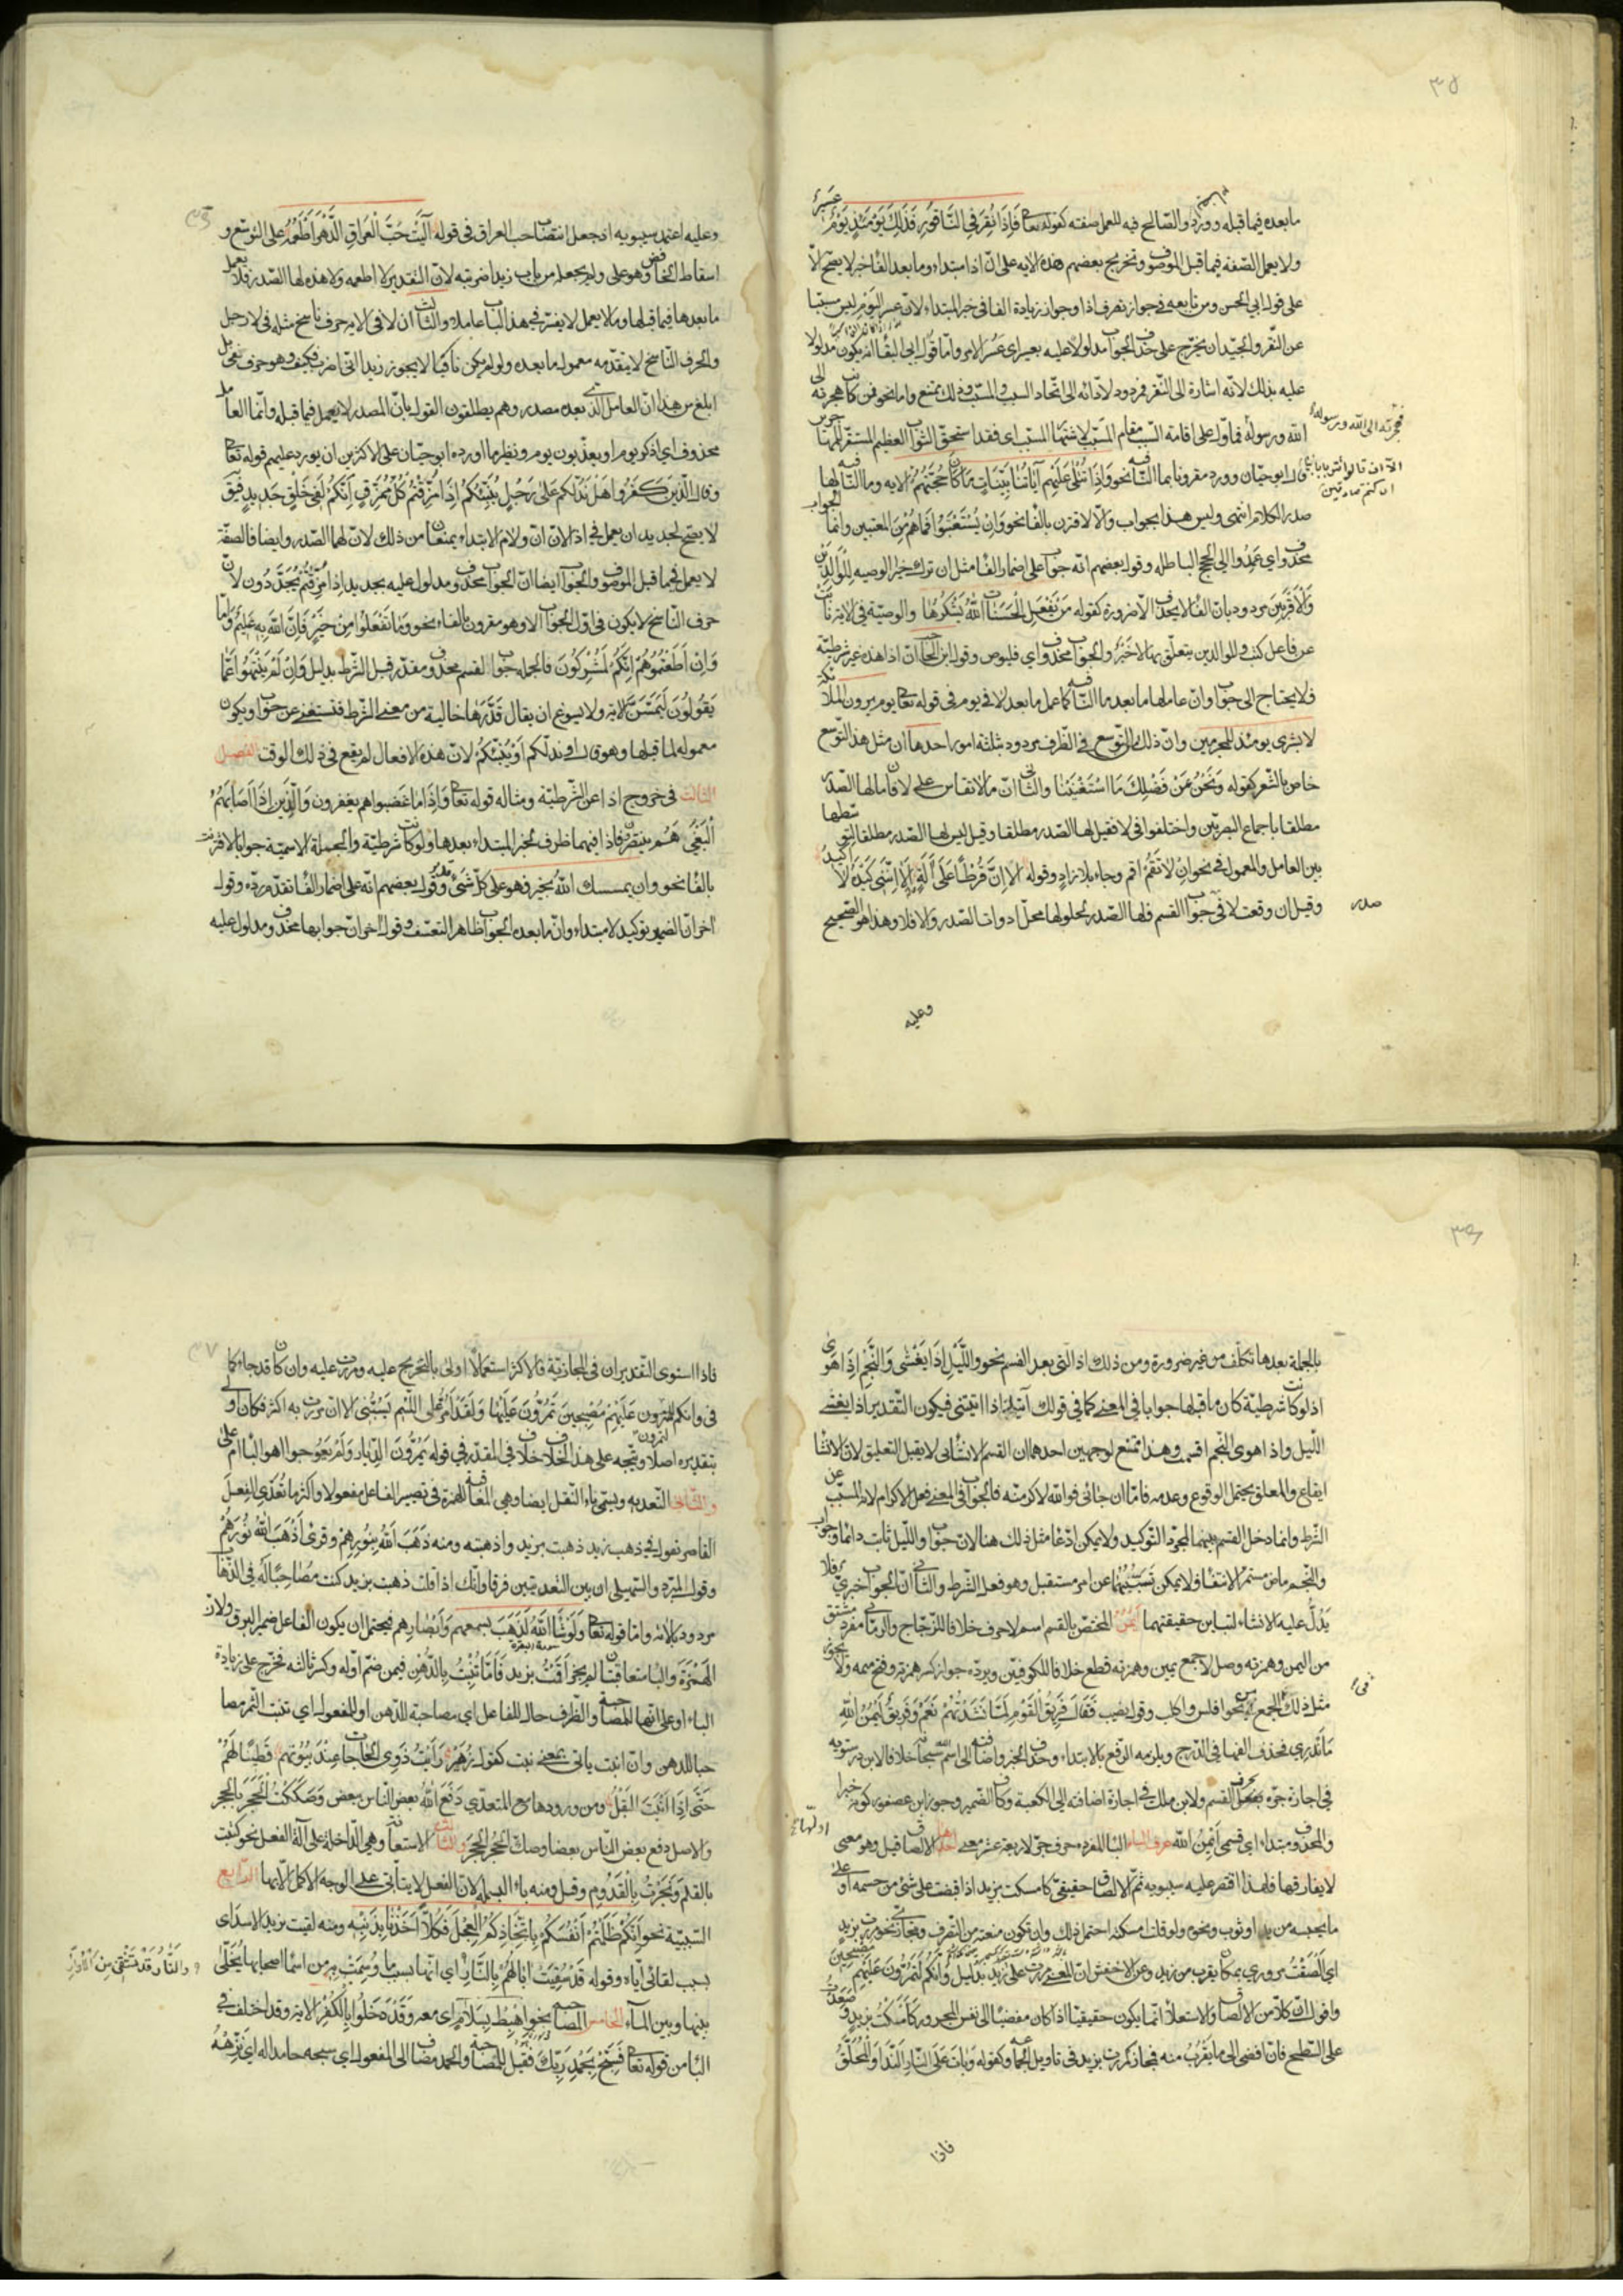 ٣٥
ما بعده فيما قبله وورد والصّالح فيه للعمل صفته كقوله تعا فَإِذَا نُقِرَ فِي النَّاقُورِ فَذَلِكَ يَوْمَئِذٍ يَوْمٌ عَسِيرٌ
ولا يعمل الصّفه فيما قبل الموصوف وتخريج بعضهم هذه الايه على انّ اذا مبتداء وما بعد الفا خبر لا يصح الّا
على قول ابى الحسن ومن تابعه فى جواز تصرف اذا وجواز زيادة الفا فى خبر المبتداء لانّ عسر اليوم ليس مسببا
عن النّقر والجيّد ان يخرّج على حذف الجواب مدلولا عليه بعسير اى عسر الامر وامّا قول ابى البقا انّه يكون مدلولا
عليه بذلك لانّه اشارة الى النّقر فمردود لادّائه الى اتّحاد السبب والمسبّب وذلك ممتنع واما نحو فمن كانت هجرته الى
الله ورسوله فماوّل على اقامة السّبب مقام المسبّب لاشتهار المسبّب اى فقد استحقّ الثواب العظيم المستقرّ للمهاجرين
فهجرته الى الله ورسوله
قال ابو حيّان وورد مقرونا بما النّافيه نحو وَإِذَا تُتْلَى عَلَيْهِمْ آيَاتُنَا بَيِّنَاتٍ مَا كَانَ حُجَّتَهُمْ الايه وما النّافيه لها
الّا ان قالوا ائتوا بابائنا ان كنتم صادقين
صدر الكلام انتهى وليس هذا بجواب والّا لاقترن بالفا نحو وَإِنْ يَسْتَعْتِبُوا فَمَا هُمْ مِنَ الْمعتبين وانما الجواب
محذوف اى عمدوا الى الحجج الباطله وقول بعضهم انّه جواب على اضمار الفا مثل ان ترك خيرا الوصيه للوَالِدَيْنِ
وَالأَقْرَبِينَ مردود بانّ الفا لا يحذف الّا ضرورة كقوله مَنْ يَفْعَلِ الْحَسَنَاتِ اللهُ يَشْكُرُهَا والوصيّة فى الاية نائب
عن فاعل كتب وللوالدين متعلّق بها لا خبر والجواب محذوف اى فليوص وقول ابن الحاجب انّ اذا هذه غير شرطيّة
فلا يحتاج الى جواب وانّ عاملها ما بعد ما النّافيه كما عمل ما بعد لا فى يوم فى قوله تعا يوم يرون الملائكة
لا بشرى يومئذ للمجرمين وانّ ذلك من التّوسّع فى الظّرف مردود بثلثه امور احدها ان مثل هذا التّوسّع
خاص بالشّعر كقوله وَنَحْنُ عَنْ فَضْلِكَ مَا اسْتَغْنَيْنَا والثّانى انّ ما لا تقاس على لا فان ما لها الصّدر
مطلقا باجماع البصريّين واختلفوا فى لا فقيل لها الصّدر مطلقا وقيل ليس لها الصّدر مطلقا لتوسّطها
بين العامل والمعمول فى نحو ان لا تَقُمْ اقم وجاء بلا زاد وقوله الا انّ قُرْطًا عَلَى آلَةٍ الَا انّنى كَيْدَهُ لَا اَكِيدُ
وقيل ان وقعت لا فى جواب القسم فلها الصّدر لحلولها محلّ ادوات الصّدر والا فلا وهذا هو الصّحيح
صدر
وعليه
وعليه اعتمد سيبويه اذ جعل انتصاب حب العراق فى قوله آلَيْتَ حُبَّ الْعِرَاقِ الدَّهْرَ أَطْعَمُهُ على التوسّع و
اسقاط الخافض وهو على ولم يجعله من باب زيدا ضربته لانّ التقدير لا اطعمه ولا هذه لها الصّدر فلا يعمل
ما بعدها فيما قبلها وما لا يعمل لا يفسّر فى هذا الباب عاملا والثالث ان لا فى الاية حرف ناسخ مثله فى لا رجل
والحرف النّاسخ لا يتقدّمه معمول ما بعده ولو لم يكن نافيا لا يجوز زيدا انّى اضرب فكيف وهو حرف نفى بل
ابلغ من هذا انّ العامل الّذى بعده مصدر وهم يطلقون القول بانّ المصدر لا يعمل فيما قبله وانّما العامل
محذوف اى اذكر يوم او يعذّبون يوم ونظير ما اورده ابو حيّان على الاكثرين ان يورد عليهم قوله تعا
وقال الَّذِينَ كَفَرُوا هَلْ نَدُلُّكُمْ عَلَى رَجُلٍ يُنَبِّئُكُمْ إِذَا مُزِّقْتُمْ كُلَّ مُمَزَّقٍ إِنَّكُمْ لَفِي خَلْقٍ جَدِيدٍ فيقَ
لا يصحّ لجديد ان يعمل فى اذا لانّ انّ ولام الابتداء يمنعان من ذلك لانّ لهما الصّدر وايضا فالصفة
لا يعمل فيما قبل الموصوف والجواب ايضا انّ الجواب محذوف ومدلول عليه بجديد اى اذا مُزِّقْتُمْ تُجَدَّدُونَ لانّ
حرف النّاسخ لا يكون فى اوّل الجواب الا وهو مقرون بالفاء نحو وَمَا تَفْعَلُوا مِنْ خَيْرٍ فَإِنَّ اللهَ بِهِ عَلِيمٌ وامّا
وَإِنْ أَطَعْتُمُوهُمْ إِنَّكُمْ لَمُشْرِكُونَ فالجملة جواب القسم محذوف مقدّر قبل الشّرط بدليل وَإِنْ لَمْ يَنْتَهُوا عَمَّا
يَقُولُونَ لَيَمَسَّنَّ الاية ولا يسوغ ان يقال قَدَّرَهَا خالية من معنى الشّرط فتستغنى عن جواب ويكون
معموله لما قبلها وهو قال او ندلّكم اَوْ يُنَبِّئُكُمْ لانّ هذه الافعال لم يقع فى ذلك الوقت الفصل
الثالث فى خروج اذا عن الشّرطيّة ومثاله قوله تعا وَإِذَا مَا غَضِبُوا هم يغفرون وَالَّذِينَ إِذَا أَصَابَهُمُ
الْبَغْيُ هُمْ ينتصرون فاذا فيهما ظرف لخبر المبتداء بعدها ولو كانت شرطيّة والجملة الاسميّة جوابا لاقترنت
بالفا نحو وان يمسسك اللهُ بخير فهو على كلّ شئ قدير وقول بعضهم انّه على اضمار الفا تقدّم ردّه وقول
اخر انّ الضّمير توكيد لا مبتداء وانّ ما بعده الجواب ظاهر التعسّف وقول اخر انّ جوابها محذوف ومدلول عليه
٣٦
بالجملة بعدها تكلّف من غير ضرورة ومن ذلك اذا الّتى بعد القسم نحو واللَّيْلِ إِذَا يَغْشَى وَالنَّجْمِ إِذَا هَوَى
اذ لو كانت شرطيّة كان ما قبلها جوابا فى المعنى كما فى قولك آتيك اذا اتيتنى فيكون التّقدير اذا يغشى
اللّيل واذا هوى النّجم اقسمت وهذا ممتنع لوجهين احدهما ان القسم الانشائى لا يقبل التعليق لانّ الانشا
ايقاع والمعلق يحتمل الوقوع وعدمه فامّا ان جائنى فوالله لاكرمنّه فالجواب فى المعنى فعل الاكرام لانّه المسبّب عن
الشّرط وانما دخل القسم بينهما لمجرّد التّوكيد ولا يمكن ادّعا مثل ذلك هنا لانّ جواب واللّيل ثابت دائما وجواب
والنّجم ماض مستمرّ الانتفاء فلا يمكن تسبّبهما عن امر مستقبل وهو فعل الشّرط والثّانى انّ الجواب خبرىّ فلا
يَدُلُّ عليه الانشاء لتباين حقيقتهما اَيْمُن المختصّ بالقسم اسم لا حرف خلافا للزّجّاج والرمّانى مفرد مشتق
من اليمن وهمزته وصل لا جمع يمين وهمزته قطع خلافا للكوفيّين ويردّه جواز كسر همزته وفتح ميمه ولا يجوز
مثل ذلك فى الجمع من نحو افلس واكلب وقول نصيب فَقَالَ فَرِيقُ الْقَوْمِ لَمَّا نَشَدْتُهُمْ نَعَمْ وَفَرِيقٌ لَيْمُنُ اللهِ
مَا نَدْرِي فحذف الفها فى الدّرج ويلزمه الرّفع بالابتداء وحذف الخبر واضافته الى اسم الله سبحانه خلافا لابن درستويه
فى اجازة جرّه بحرف القسم ولابن مالك فى اجازة اضافته الى الكعبة وكاف الضّمير وجوز ابن عصفور كونه خبرا
والمحذوف مبتداء اى قسمى اَيْمُنُ اللهِ حرف الباء البا المفرده حرف جرّ لاربعة عشر معنى احدها الالصاق قيل وهو معنى
اولها
لا يفارقها فلهذا اقتصر عليه سيبويه ثمّ الالصاق حقيقىّ كامسكت بزيد اذا قبضت على شئ من جسمه او على
ما يحبسه من يد او ثوب ونحوه ولو قلت امسكته احتمل ذلك وان تكون منعته من التّصرف ومجازىّ نحو مررت بزيد
اى الْصَقْتُ مرورى بمكان يقرب من زيد وعن الاخفش انّ المعنى مررت على زيد بدليل وَإِنَّكُمْ لَتَمُرُّونَ عَلَيْهِمْ مُصْبِحِينَ
واقول انّ كلّا من الالصاق والاستعلاء انّما يكون حقيقيّا اذا كان مفضيا الى نفس المجرور كامسكت بزيد وصَعَدْتُ
على السّطح فانّ افضى الى ما يَقْرُبُ منه فمجاز كمررت بزيد فى تاويل الجماعة وكقوله وَبَاتَ عَلَى النَّارِ النَّدَا وَالْمُحَلَّقُ
فاذا
٣٧
فاذا استوى التّقديران فى المجازيّة فالاكثر استعمالا اولى بالتخريج عليه ومررت عليه وان كان قد جاء كما
فى وانكم لتمرون عَلَيْهِمْ مُصْبِحِينَ يَمُرُّونَ عَلَيْهَا وَلَقَدْ أَمُرُّ على اللَّئِيمِ يَسُبُّنِي الا ان مررت به اكثر فكان او
بتقديره اصلا ويتّجه على هذا الخلاف خلاف فى المقدّر فى قوله تَمُرُّونَ الدِّيَارَ وَلَمْ تَعُوجُوا اهو البا ام على
والثّانى التّعديه ويسمّى باء النّقل ايضا وهى المعاقبة للهمزة فى تصيير الفاعل مفعولا واكثر ما تُعَدِّي الفِعلَ
القاصر نقول فى ذهب زيد ذهبت بزيد واذهبته ومنه ذَهَبَ اللهُ بِنُورِهِمْ وقرئ أَذْهَبَ اللهُ نُورَهُمْ
وقول المبرّد والسّهيلى ان بين التّعديتين فرقا وانّك اذا قلت ذهبت بزيد كنت مُصَاحِبًا لَهُ فى الذّهاب
مردود بالاية وامّا قوله تعا وَلَوْ شَاءَ اللهُ لَذَهَبَ بسمعهم وَأَبْصَارِهِم فيحتمل ان يكون الفاعل ضمير البرق ولانّ
الهَمْزَةَ والبا متعاقبتان لم يجز اَقَمْتُ بزيد فَأَمَّا تُنْبِتُ بِالدُّهْنِ فيمن ضمّ اوّله وكسر ثالثه فخرّج على زيادة
الباء او على انّها للمصاحبة والظّرف حال للفاعل اى مصاحبة للدّهن او المفعول اى تنبت الثّمر مصا
حبا للدهن وان انبت ياتى بمعنى نبت كقول زُهَيْر رَأَيْتُ ذَوِي الْحَاجَاتِ عِنْدَ بُيُوتِهِمْ قَطِينًا لَهُمْ
حَتَّى إِذَا أَنْبَتَ الْبَقْلُ ومن ورودها مع المتعدّى دَفْعُ اللهِ بعض النّاس ببعض وَصَكَكْتُ الْحَجَرَ بِالْحَجَرِ
والاصل دفع بعض النّاس بعضا وصكّ الْحَجَرُ الْحَجَرَ والثالث الاستعانة وهى الدّاخلة على آلة الفعل نحو كتبت
بالقلم وَنَجَرْتُ بِالْقَدُومِ وقيل ومنه باء البسملة لانّ الفعل لا يتأتّى على الوجه الاكمل الّا بها الرّابع
السّببيّة نحو إِنَّكُمْ ظَلَمْتُمْ أَنْفُسَكُمْ بِاتِّخَاذِكُمُ الْعِجْلَ فَكُلًّا أَخَذْنَا بِذَنْبِهِ ومنه لقيت بزيد الاسد اى
بسبب لقائى ايّاه وقوله قَدْ سُقِيَتْ آبَالُهُمْ بِالنَّارِ اى انّها بسبب ما وُسِمَتْ بِهِ من اسما اصحابها يُخَلَّى
وَالنَّارُ قَدْ تَشْفِي مِنَ الْأُوَارِ
بينها وبين الماء الخامس المصاحبة نحو اِهْبِطْ بِسَلَامٍ اى معه وَقَدْ دَخَلُوا بِالْكُفْرِ الاية وقد اختلف فى
البا من قوله تعا فَسَبِّحْ بِحَمْدِ رَبِّكَ فقيل للمصاحبة والحمد مضاف الى المفعول اى سبحه حامدا له اى نَزِّهْهُ